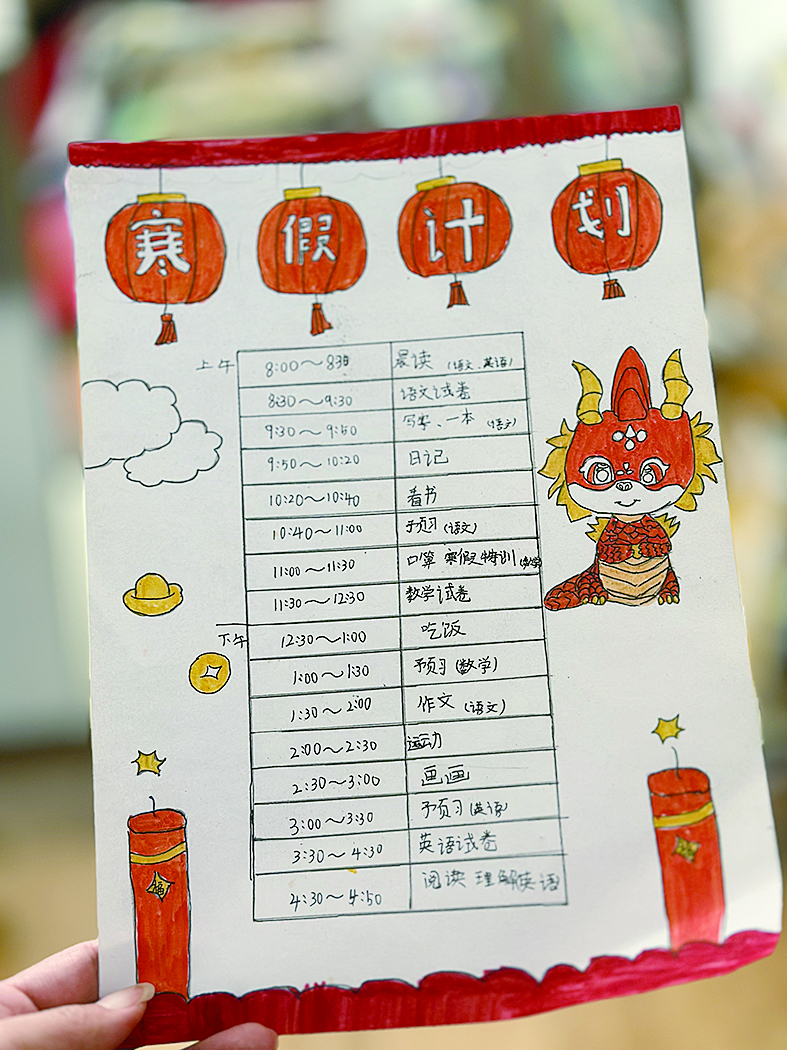 寒假计划
上午 8:00～8:30 晨读（语文、英语）
8:30～9:30 语文试卷
9:30～9:50 写字、一本（语文）
9:50～10:20 日记
10:20～10:40 看书
10:40～11:00 预习（语文）
11:00～11:30 口算 寒假特训（数学
11:30～12:30 数学试卷
下午 12:30～1:00 吃饭
1:00～1:30 预习（数学）
1:30～2:00 作文（语文）
2:00～2:30 运动
2:30～3:00 画画
3:00～3:30 预习（英语）
3:30～4:30 英语试卷
4:30～4:50 阅读 理解英语
福